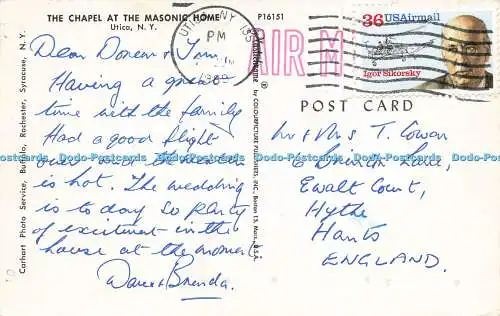 THE CHAPEL AT THE MASONIC HOME
Utica, N. Y.
P16151
UTICA, NY 135
PM
AIR M
36 USAirmail
Igor Sikorsky
POST CARD
Dear Doreen & Tom,
Having a great
time with the family
Had a good flight
over and the weather
is hot. The wedding
is to day so plenty
of excitement in the
house at the moment.
Dave & Brenda.
Mr & Mrs T. Cowan
6
Lane,
Ewalt Court,
Hythe
Hants
ENGLAND.
Carhart Photo Service, Buffalo, Rochester, Syracuse, N. Y.
by COLOURPICTURE PUBLISHERS, INC., Boston 15, Mass., U.S.A.
Dodo-Postcards Dodo-Postcards Dodo-Postcards Dodo-Postcards Dodo-Postcards Dodo-Postcards